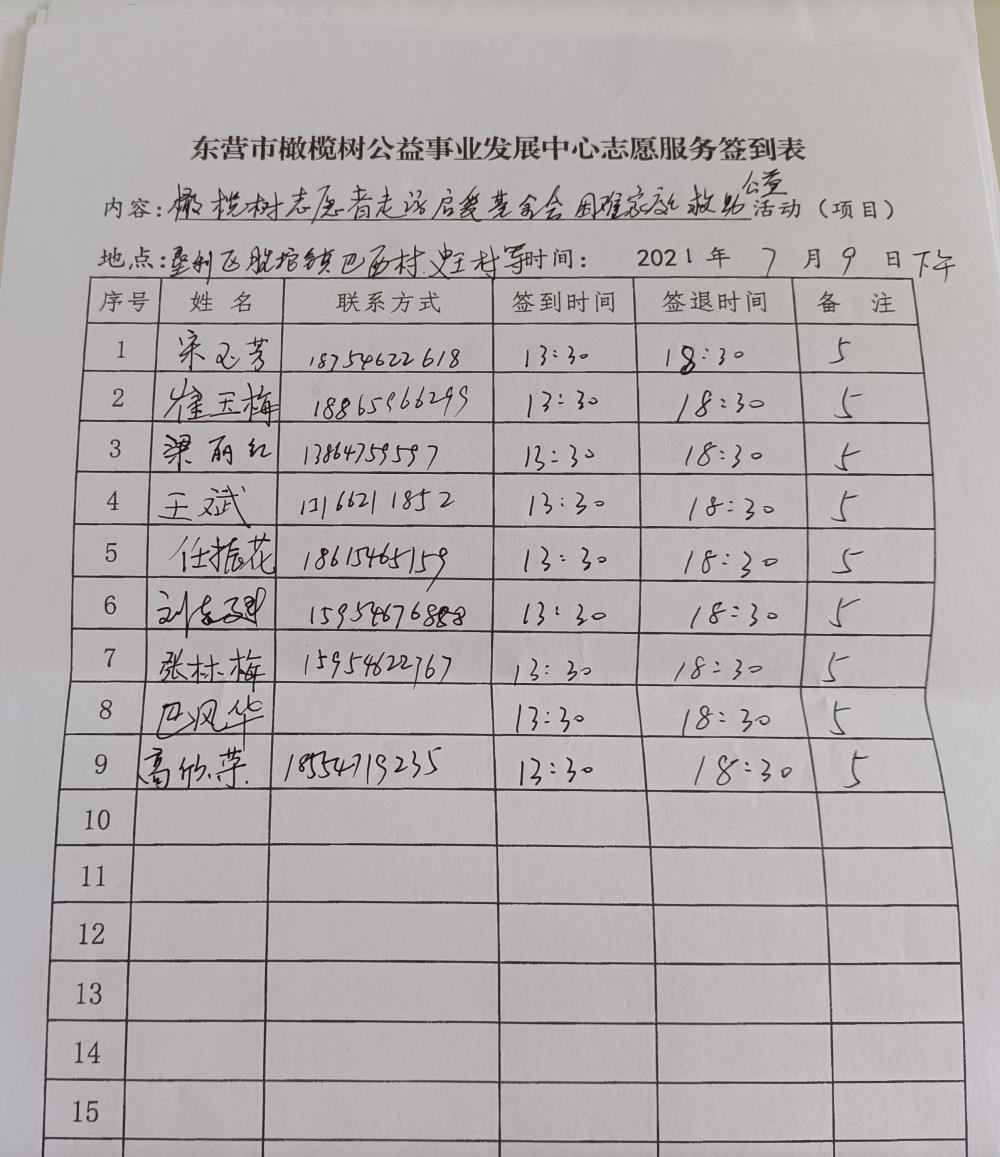 东营市橄榄树公益事业发展中心志愿服务签到表
内容:橄榄树志愿者走访启爱基金会困难家庭救助公益活动(项目)
地点:垦利区胜坨镇巴西村.史王村等时间: 2021年 7 月 9 日下午
序号 姓名 联系方式 签到时间 签退时间 备注
1 宋玉芳 18754622618 13:30 18:30 5
2 崔玉梅 18865966299 13:30 18:30 5
3 梁丽红 13864759597 13:30 18:30 5
4 王斌 13166211852 13:30 18:30 5
5 任振花 18615465159 13:30 18:30 5
6 刘 15954676888 13:30 18:30 5
7 张林梅 15954622767 13:30 18:30 5
8 巴风华 13:30 18:30 5
9 高欣荣 18554719235 13:30 18:30 5
10
11
12
13
14
15